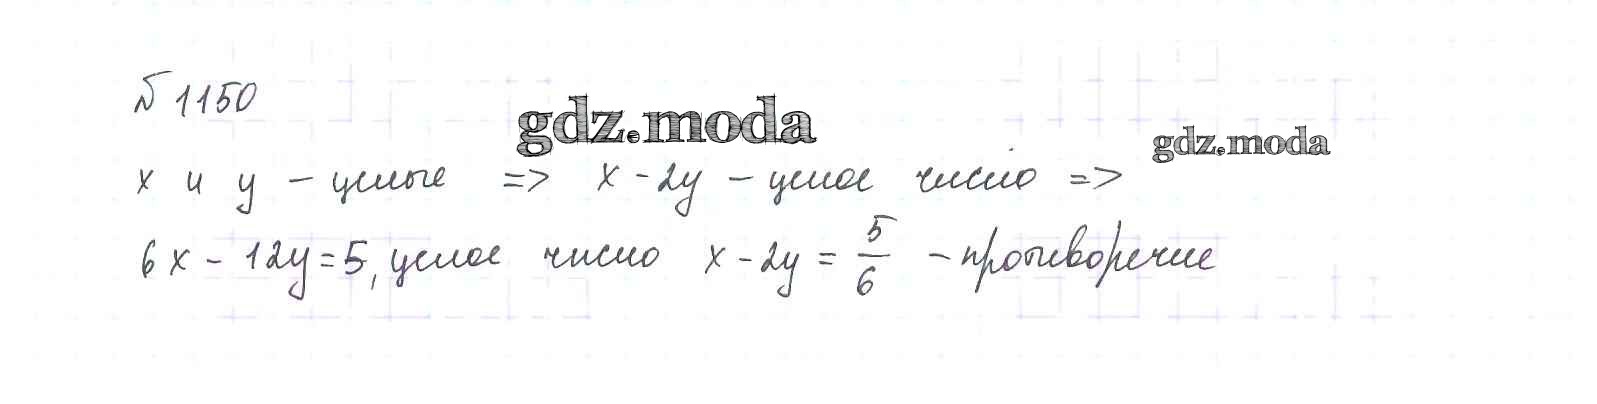 № 1150
gdz.moda
gdz.moda
x и y – целые => x - 2y – целое число =>
6x - 12y = 5, целое число x - 2y = 5/6 – противоречие